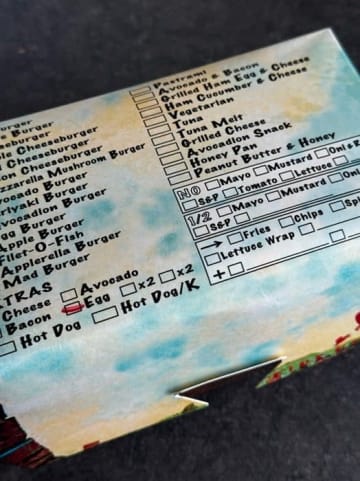 Burger
Burger
Cheeseburger
Cheeseburger
Cheeseburger
Mozzarella Mushroom Burger
Avocado Burger
Teriyaki Burger
Avocadion Burger
Burger
Apple Burger
Filet-O-Fish
Applerella Burger
Mad Burger
EXTRAS
Cheese Avocado
Bacon Egg x2 x2
Hot Dog Hot Dog/K
Pastrami
Avocado & Bacon
Grilled Ham Egg & Cheese
Ham Cucumber & Cheese
Vegetarian
Tuna
Tuna Melt
Grilled Cheese
Avocadion Snack
Honey Pan
Peanut Butter & Honey
NO Mayo Mustard
S&P Tomato Lettuce
1/2 Mayo Mustard
S&P
→ Fries Chips
Lettuce Wrap
+